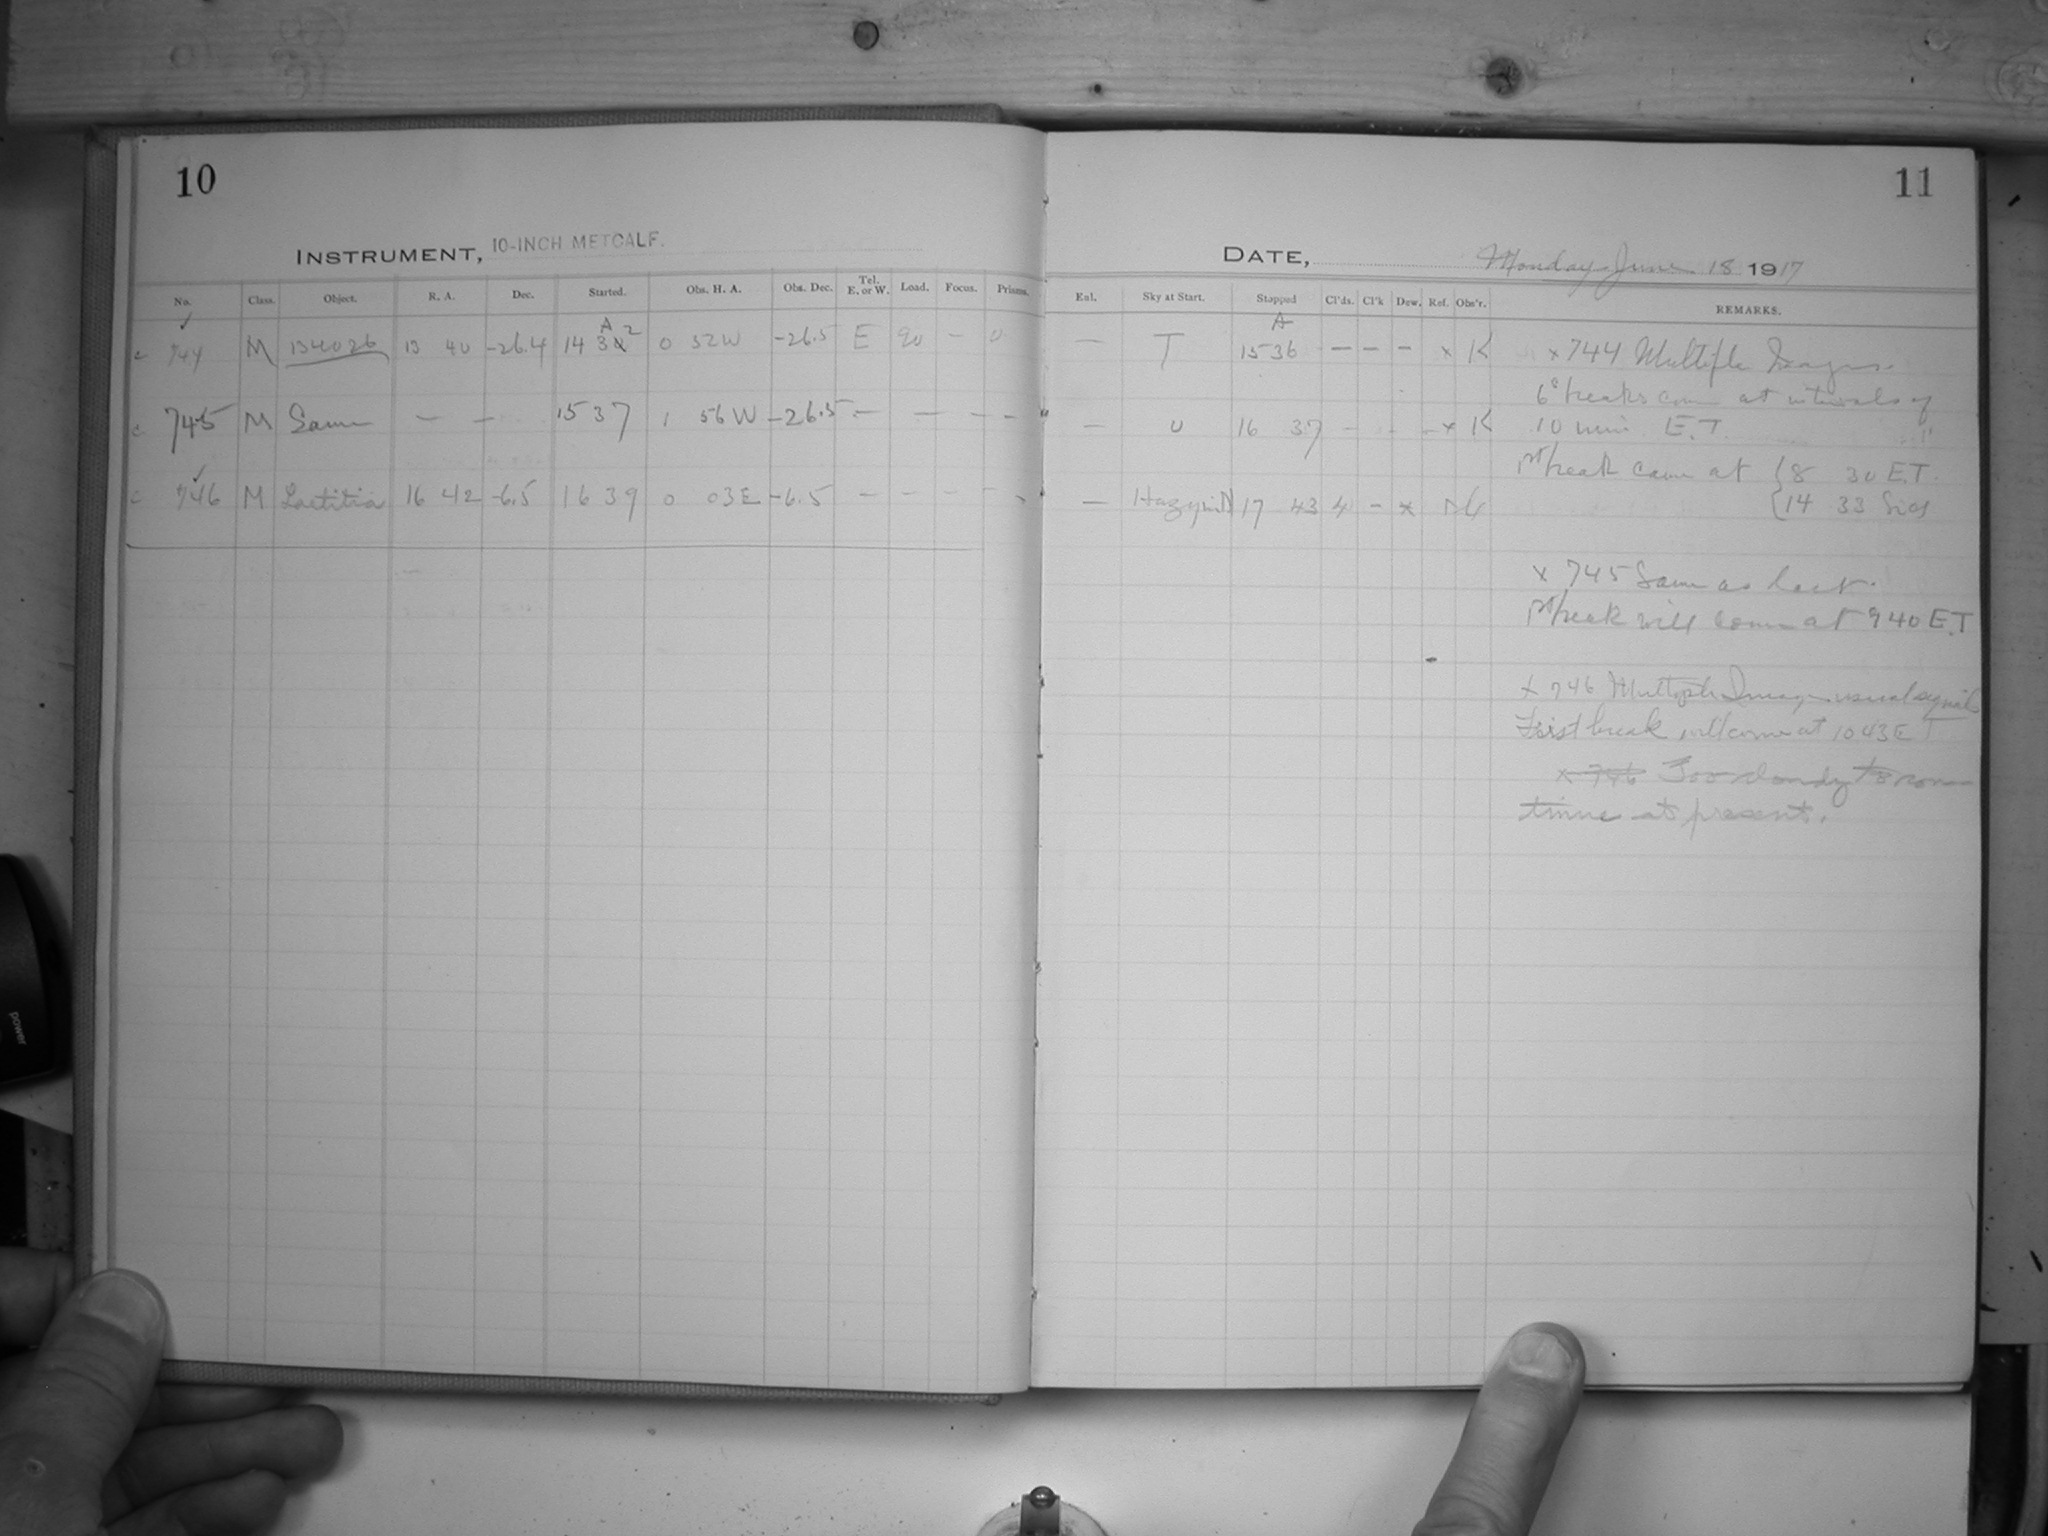 10
INSTRUMENT, 10-INCH METCALF.
No. Class. Object. R. A. Dec. Started. Obs. H. A. Obs. Dec. Tel. E. or W. Load. Focus. Prisms.
744 M 134026 13 40 -26.4 14 32 0 52W -26.5 E 90 - 0
745 M Same — — 15 37 1 56 W -26.5 — — — —
746 M Laetitia 16 42 -6.5 16 39 0 03E -6.5 — — — —
11
DATE, Monday June 18 1917
Enl. Sky at Start. Stopped Cl'ds. Cl'k Dew. Ref. Obs'r. REMARKS.
A
— T 15 36 — — — x K
— U 16 37 - - - x K
— Hazy 17 43 4 - x
x 744 Multiple Images.
6 breaks come at intervals of
10 min. E.T.
1st break came at { 8 30 E.T.
{ 14 33 Sid
x 745 Same as last.
1st break will come at 9 40 E.T
x 746 Multiple Image usual signal
First break will come at 10 43 E T
x 746 Too cloudy to con-
tinue at present.
power